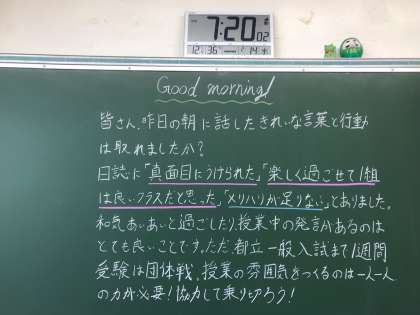 7:20 02
12:36 14
Good morning!
皆さん、昨日の朝に話したきれいな言葉と行動
は取れましたか?
日誌に「真面目にうけられた」「楽しく過ごせて1組
は良いクラスだと思った」「メリハリが足りない」とありました。
和気あいあいと過ごしたり、授業中の発言があるのは
とても良いことです。ただ、都立一般入試まで1週間
受験は団体戦、授業の雰囲気をつくるのは一人一人
の力が必要!協力して乗り切ろう!